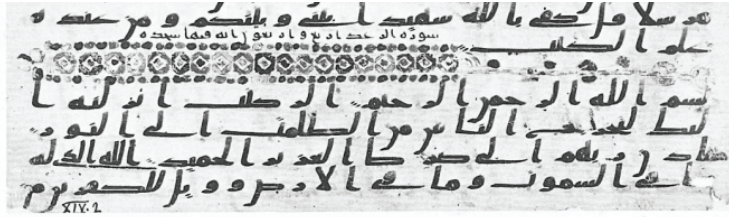 مرسلا قل كفى بالله شهيدا بيني و بينكم و من عنده
سوره فيها سجده
علم الكتب
بسم الله الرحمن الرحيم الر كتب انزلنه ا
ليك لتخرج الناس من الظلمت الى النور
باذن ربهم الى صرط العزيز الحميد الله الذي له
ما في السموت و ما في الارض و ويل للكفرين م
XIV.2